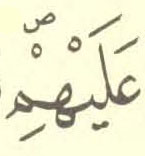 ص
عَلَيْهِمْ